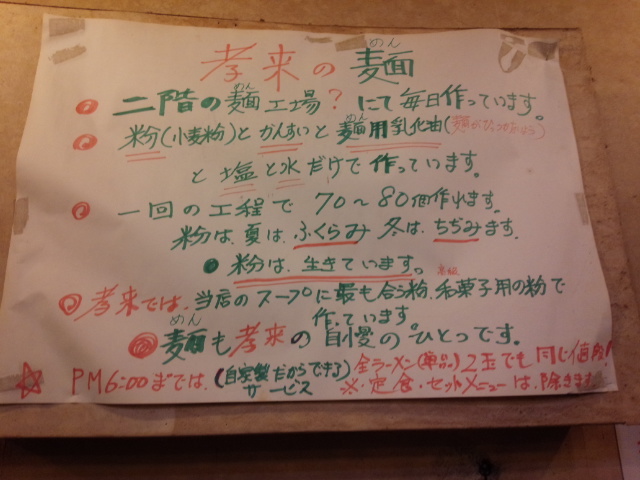 孝来の麺
めん
二階の麺工場?にて毎日作っています。
めん
粉(小麦粉)とかんすいと麺用乳化油(麺がひっつかぬよう)
と塩と水だけで作っています。
一回の工程で70〜80個作れます。
粉は、夏は、ふくらみ冬は、ちぢみます。
●粉は、生きています。
孝来では、当店のスープに最も合う粉、高級和菓子用の粉で
作っています。
めん
麺も孝来の自慢のひとつです。
☆PM6:00までは、(自家製だからできるサービス)全ラーメン(単品)2玉でも同じ値段!
※定食・セットメニューは、除きます。